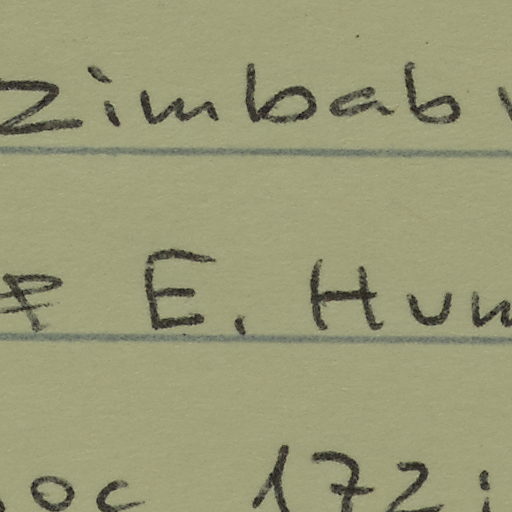 Zimbab
E. Hun
oc 172i